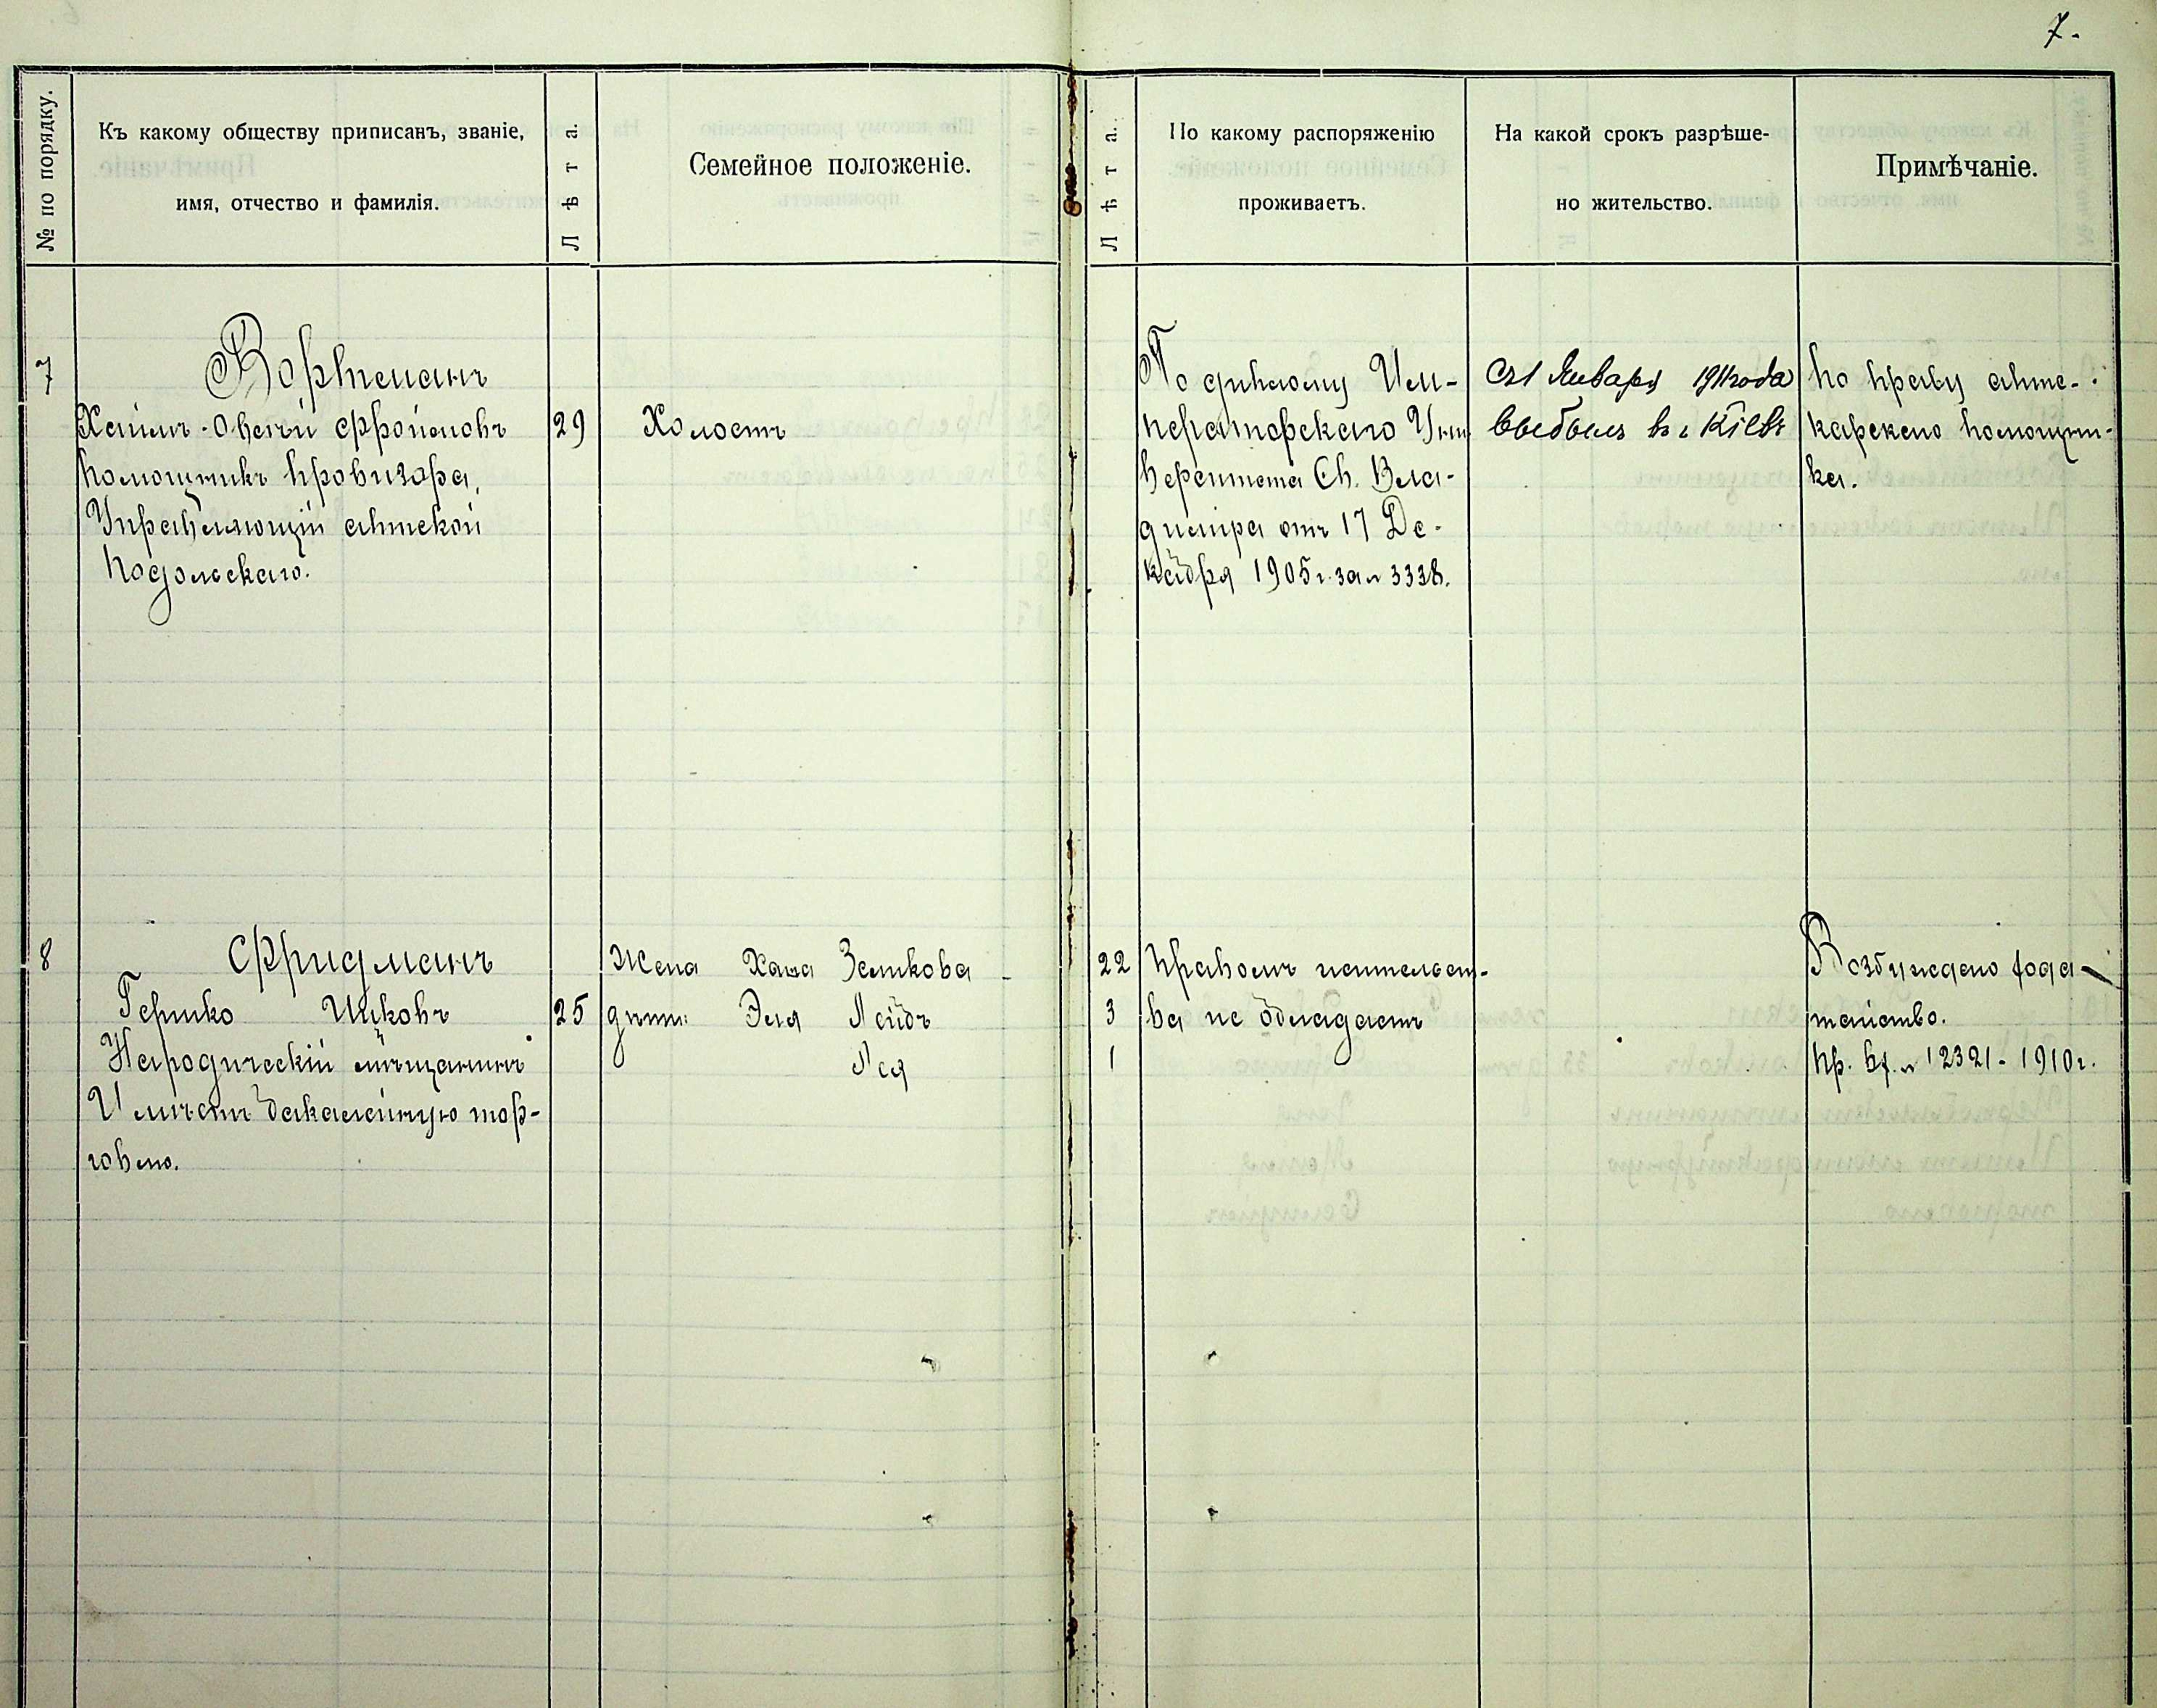 7.
№ по порядку.
Къ какому обществу приписанъ, званіе,
имя, отчество и фамилія.
Лѣта.
Семейное положеніе.
Лѣта.
По какому распоряженію
проживаетъ.
На какой срокъ разрѣше-
но жительство.
Примѣчаніе.
7
Вортманъ
Хаимъ-Овсій Фроимовъ
помощникъ провизора,
Управляющій аптекой
Подольскаго.
29
Холостъ
По диплому Им-
ператорскаго Уни
верситета Св. Вла-
диміра отъ 17 Де-
кабря 1905 г. за № 3338.
Съ 1 Января 1911 года
выбылъ въ г. Кіевъ
по праву апте-
карскаго помощни-
ка.
8
Фридманъ
Гершко Ицковъ
Народическій мѣщанинъ
Имѣетъ бакалейную тор-
говлю.
25
Жена Хана Зеликова
дѣти: Эля Лейбъ
Лея
22
3
1
Правомъ жительст-
ва не обладаетъ
Возбуждено хода-
тайство.
Пр. вх. № 12321 - 1910 г.